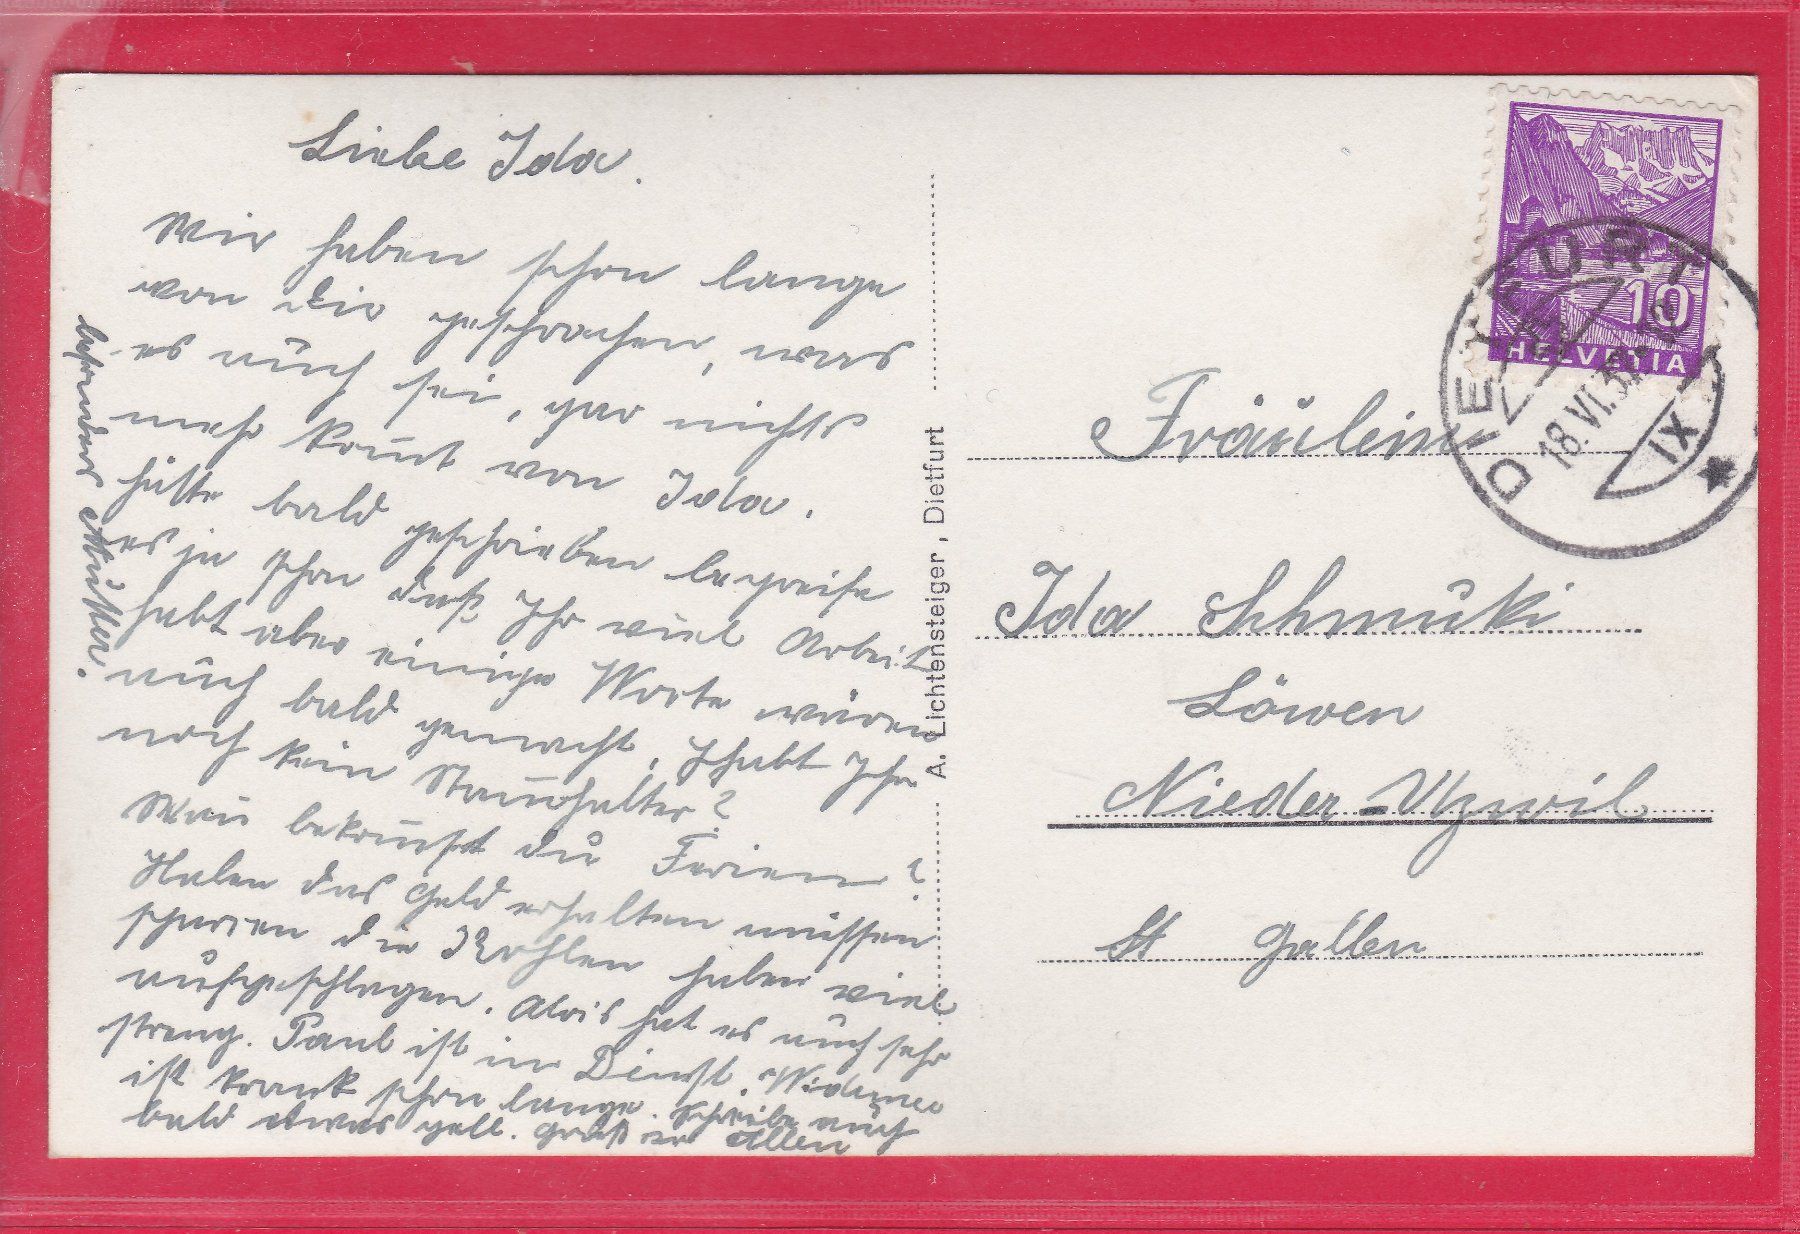 Liebe Ida.
Wir haben schon lange
von dir gesprochen, was
es auch sei, gar nichts
mehr kommt von Ida.
hätte bald geschrieben begreife
es ja schon daß Ihr viel Arbeit
habt aber einige Worte wären
auch bald gemacht. Habt Ihr
noch kein Statthalter?
Wan bekomst du Ferien?
Haben das Geld erhalten müssen
sparren die Kohlen haben viel
aufgeschlagen. Alois hat es auch sehr
streng. Paul ist im Dienst.
ist krank schon lange. Schreibe auch
bald etwas gell. Grüße an Allen
besonders Mutter.
A. Lichtensteiger, Dietfurt
HELVETIA
10
DIETFURT
18.VI.3
IX
Fräulein
Ida Schmuki
Löwen
Nieder-Uzwil
St Gallen